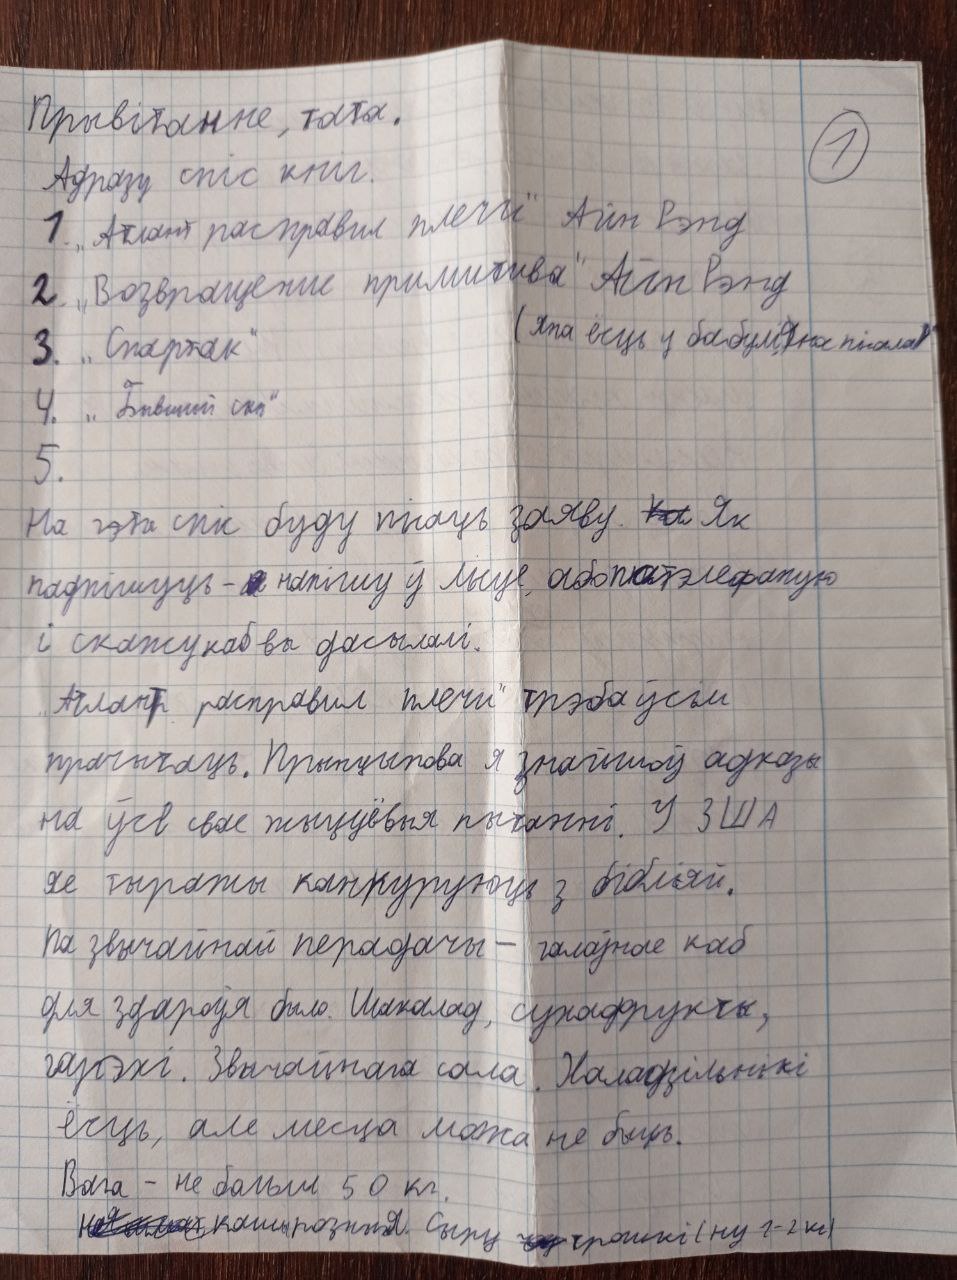 Прывітанне, тата.
1
Адразу спіс кніг.
1. „Атлант расправил плечи" Айн Рэнд
2. „Возвращение примитива" Айн Рэнд
3. „Спартак" (Яна ёсць у бабулі, яна пісала)
4. „Бывший сын"
5.
На гэты спіс буду пісаць заяву. Як
падпішуць - напішу ў лісце, або патэлефаную
і скажу каб вы дасылалі.
„Атлант расправил плечи" трэба ўсім
прачытаць. Прынцыпова я знайшоў адказы
на ўсе свае жыццёвыя пытанні. У ЗША
яе тыражы канкуруюць з бібліяй.
Па звычайнай перадачы - галоўнае каб
для здароўя было. Шакалад, сухафрукты,
арэхі. Звычайнага сала. Халадзільнікі
ёсць, але месца можа не быць.
Вага - не больш 50 кг.
розныя. Сыру трошкі (ну 1-2 кг)